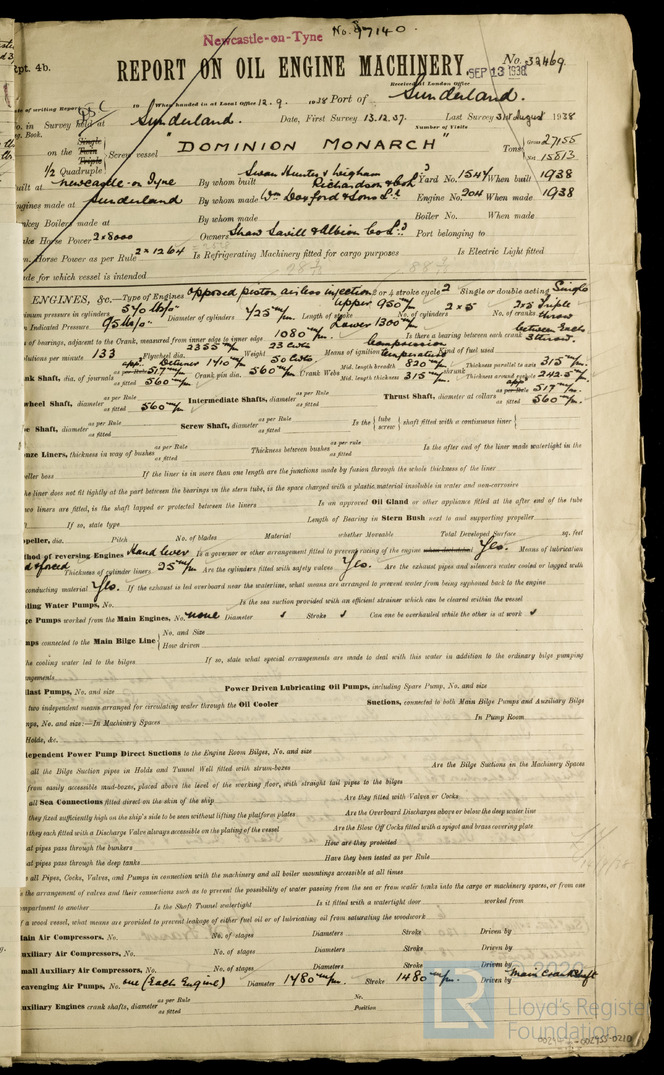 Newcastle-on-Tyne No. 97140
Rpt. 4b.
REPORT ON OIL ENGINE MACHINERY.
No. 32469
SEP 13 1938
Received at London Office
of writing Report 19 When handed in at Local Office 12.9. 1938 Port of Sunderland.
No. in Survey held at Sunderland. Date, First Survey 13.12.37. Last Survey 31st August 1938
Reg. Book. Number of Visits
on the Single Twin Triple Quadruple Screw vessel "DOMINION MONARCH" Tons Gross 27155 Net 15813
built at Newcastle-on-Tyne By whom built Swan Hunter & Wigham Richardson & Co Ld Yard No. 1547 When built 1938
Engines made at Sunderland By whom made Wm Doxford & Sons Ld Engine No. 204 When made 1938
Donkey Boilers made at By whom made Boiler No. When made
Brake Horse Power 2 x 8000 Owners Shaw Savill & Albion Co Ld Port belonging to
Nom. Horse Power as per Rule 2 x 1264 Is Refrigerating Machinery fitted for cargo purposes Is Electric Light fitted
Trade for which vessel is intended
ENGINES, &c.—Type of Engines Opposed piston airless injection 2 or 4 stroke cycle 2 Single or double acting Single
Maximum pressure in cylinders 570 lbs/sq" Diameter of cylinders 725 m/m. Length of stroke upper 950 m/m lower 1300 m/m No. of cylinders 2 x 5 No. of cranks 2x5 Triple throw
Mean Indicated Pressure 95 lbs/sq"
of bearings, adjacent to the Crank, measured from inner edge to inner edge 1080 m/m. Is there a bearing between each crank between each 3 throw.
Revolutions per minute 133 Flywheel dia. 2355 m/m Weight 23 Cwts Means of ignition Compression Kind of fuel used
Detuner 1410 m/m 50 Cwts.
Crank Shaft, dia. of journals as per Rule appd 517 m/m as fitted 560 m/m. Crank pin dia. 560 m/m. Crank Webs Mid. length breadth 820 m/m Mid. length thickness 315 m/m. Thickness parallel to axis 315 m/m. Thickness around eyehole 242.5 m/m.
Flywheel Shaft, diameter as per Rule as fitted 560 m/m. Intermediate Shafts, diameter as per Rule as fitted Thrust Shaft, diameter at collars as per Rule appd 517 m/m. as fitted 560 m/m.
Tube Shaft, diameter as per Rule as fitted Screw Shaft, diameter as per Rule as fitted Is the { tube screw } shaft fitted with a continuous liner {
Bronze Liners, thickness in way of bushes as per Rule as fitted Thickness between bushes as per rule as fitted Is the after end of the liner made watertight in the
propeller boss If the liner is in more than one length are the junctions made by fusion through the whole thickness of the liner
the liner does not fit tightly at the part between the bearings in the stern tube, is the space charged with a plastic material insoluble in water and non-corrosive
two liners are fitted, is the shaft lapped or protected between the liners Is an approved Oil Gland or other appliance fitted at the after end of the tube
If so, state type Length of Bearing in Stern Bush next to and supporting propeller
Propeller, dia. Pitch No. of blades Material whether Moveable Total Developed Surface sq. feet
Method of reversing Engines Hand lever Is a governor or other arrangement fitted to prevent racing of the engine Yes. Means of lubrication
forced Thickness of cylinder liners 25 m/m Are the cylinders fitted with safety valves Yes. Are the exhaust pipes and silencers water cooled or lagged with
non-conducting material Yes. If the exhaust is led overboard near the waterline, what means are arranged to prevent water from being syphoned back to the engine
Cooling Water Pumps, No. Is the sea suction provided with an efficient strainer which can be cleared within the vessel
Bilge Pumps worked from the Main Engines, No. none Diameter Stroke Can one be overhauled while the other is at work
Pumps connected to the Main Bilge Line { No. and Size How driven
the cooling water led to the bilges If so, state what special arrangements are made to deal with this water in addition to the ordinary bilge pumping
arrangements
Ballast Pumps, No. and size Power Driven Lubricating Oil Pumps, including Spare Pump, No. and size
two independent means arranged for circulating water through the Oil Cooler Suctions, connected to both Main Bilge Pumps and Auxiliary Bilge
Pumps, No. and size:—In Machinery Spaces In Pump Room
Holds, &c.
Independent Power Pump Direct Suctions to the Engine Room Bilges, No. and size
all the Bilge Suction pipes in Holds and Tunnel Well fitted with strum-boxes Are the Bilge Suctions in the Machinery Spaces
from easily accessible mud-boxes, placed above the level of the working floor, with straight tail pipes to the bilges
all Sea Connections fitted direct on the skin of the ship Are they fitted with Valves or Cocks
they fixed sufficiently high on the ship's side to be seen without lifting the platform plates Are the Overboard Discharges above or below the deep water line
they each fitted with a Discharge Valve always accessible on the plating of the vessel Are the Blow Off Cocks fitted with a spigot and brass covering plate
pipes pass through the bunkers How are they protected
pipes pass through the deep tanks Have they been tested as per Rule
all Pipes, Cocks, Valves, and Pumps in connection with the machinery and all boiler mountings accessible at all times
the arrangement of valves and their connections such as to prevent the possibility of water passing from the sea or from water tanks into the cargo or machinery spaces, or from one
compartment to another Is the Shaft Tunnel watertight Is it fitted with a watertight door worked from
a wood vessel, what means are provided to prevent leakage of either fuel oil or of lubricating oil from saturating the woodwork
Main Air Compressors, No. No. of stages Diameters Stroke Driven by
Auxiliary Air Compressors, No. No. of stages Diameters Stroke Driven by
Small Auxiliary Air Compressors, No. No. of stages Diameters Stroke Driven by
Scavenging Air Pumps, No. one (Each Engine) Diameter 1480 m/m. Stroke 1480 m/m. Driven by Main Crankshaft
Auxiliary Engines crank shafts, diameter as per Rule as fitted No. Position
© 2020
LR
Lloyd's Register
Foundation